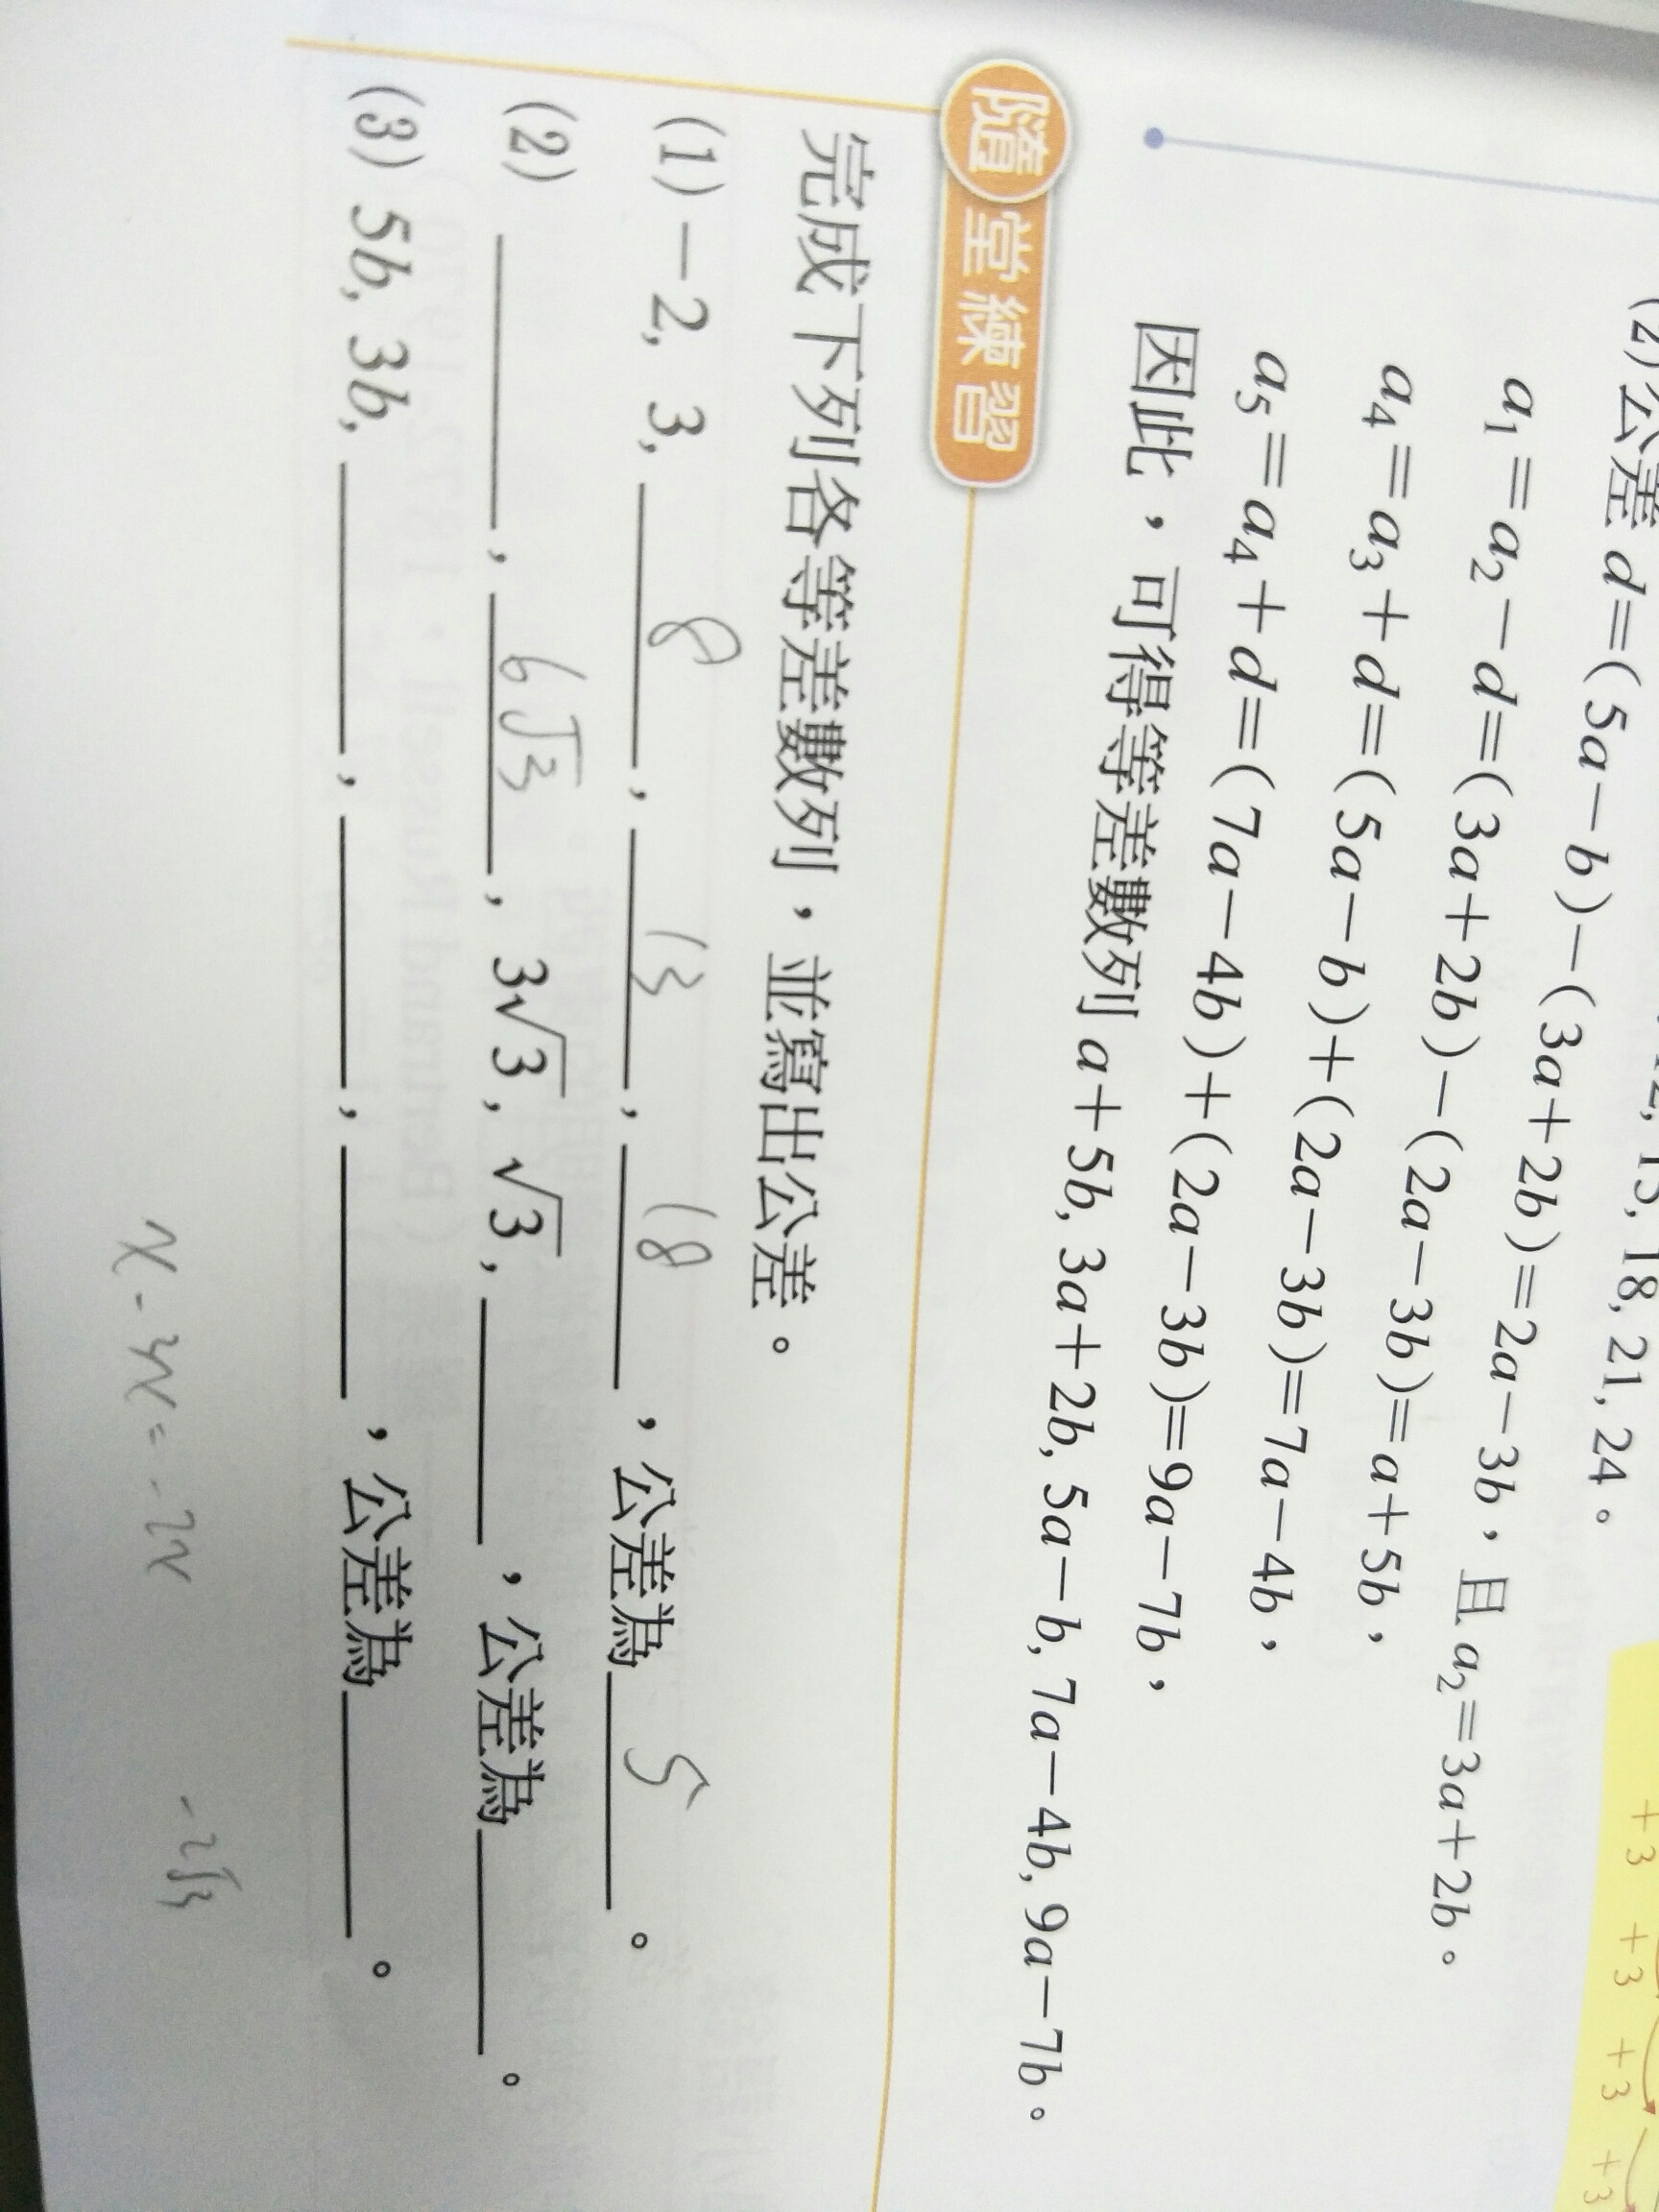 (2)公差 d=(5a-b)-(3a+2b)=2a-3b,且 a₂=3a+2b。
a₁=a₂-d=(3a+2b)-(2a-3b)=a+5b,
a₄=a₃+d=(5a-b)+(2a-3b)=7a-4b,
a₅=a₄+d=(7a-4b)+(2a-3b)=9a-7b,
因此,可得等差數列 a+5b, 3a+2b, 5a-b, 7a-4b, 9a-7b。
+3 +3 +3 +3
隨堂練習
完成下列各等差數列,並寫出公差。
(1) -2, 3, 8, 13, 18,公差為 5。
(2) ____, 6√3, 3√3, √3, ____,公差為____。
(3) 5b, 3b, ____, ____, ____,公差為____。
-2√3